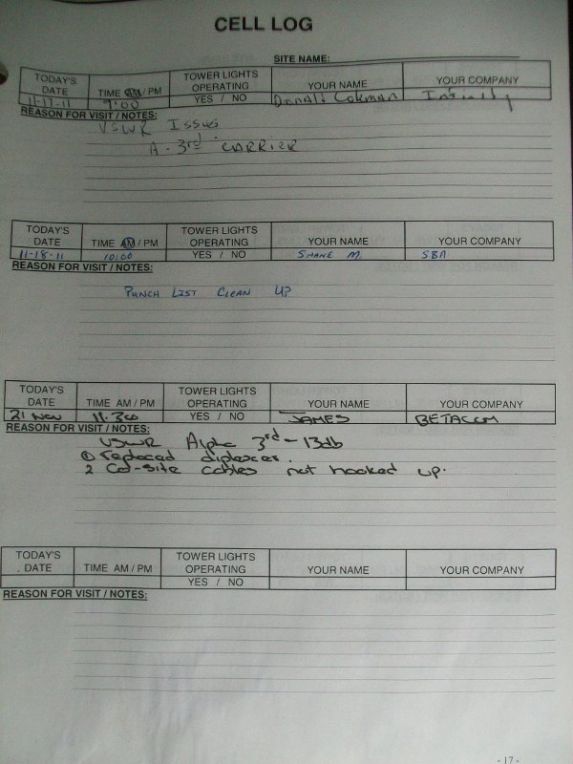 CELL LOG
SITE NAME:
TODAY'S DATE TIME AM / PM TOWER LIGHTS OPERATING YOUR NAME YOUR COMPANY
11-17-11 9:00 YES / NO Donald
REASON FOR VISIT / NOTES:
VSWR Issues
A - 3rd CARRIER
TODAY'S DATE TIME AM / PM TOWER LIGHTS OPERATING YOUR NAME YOUR COMPANY
11-18-11 10:00 YES / NO SHANE M. SBA
REASON FOR VISIT / NOTES:
PUNCH LIST CLEAN UP
TODAY'S DATE TIME AM / PM TOWER LIGHTS OPERATING YOUR NAME YOUR COMPANY
21 Nov 11.30 YES / NO JAMES BETACOM
REASON FOR VISIT / NOTES:
VSWR Alpha 3rd - 13db
① replaced diplexer.
2 Cel-site cables not hooked up.
TODAY'S DATE TIME AM / PM TOWER LIGHTS OPERATING YOUR NAME YOUR COMPANY
YES / NO
REASON FOR VISIT / NOTES:
- 17 -